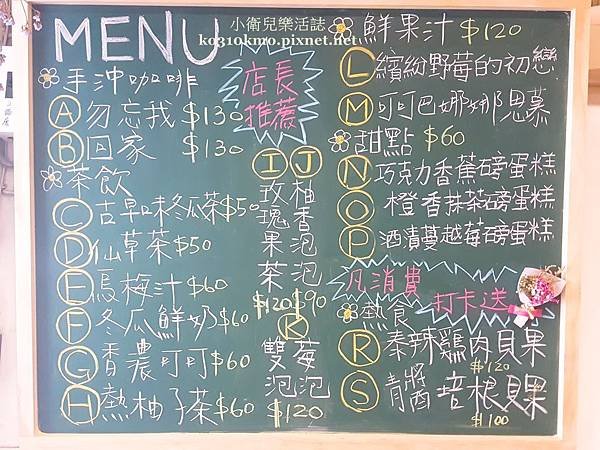 小衛兒樂活誌
ko310kmo.pixnet.net
MENU
手沖咖啡
A 勿忘我 $130
B 回家 $130
茶飲
C 古早味冬瓜茶$50
D 仙草茶$50
E 烏梅汁$60
F 冬瓜鮮奶$60
G 香濃叮叮$60
H 熱柚子茶$60
店長
推薦
I 玫瑰果茶 $120
J 柚香泡泡 $90
K 雙莓泡泡 $120
鮮果汁 $120
L 繽紛野莓的初戀
M 叮叮巴娜娜思慕
甜點 $60
N 巧克力香蕉磅蛋糕
O 橙香抹茶磅蛋糕
P 酒漬蔓越莓磅蛋糕
凡消費
打卡送
熱食
R 泰辣雞肉貝果
$120
S 青醬培根貝果
$100